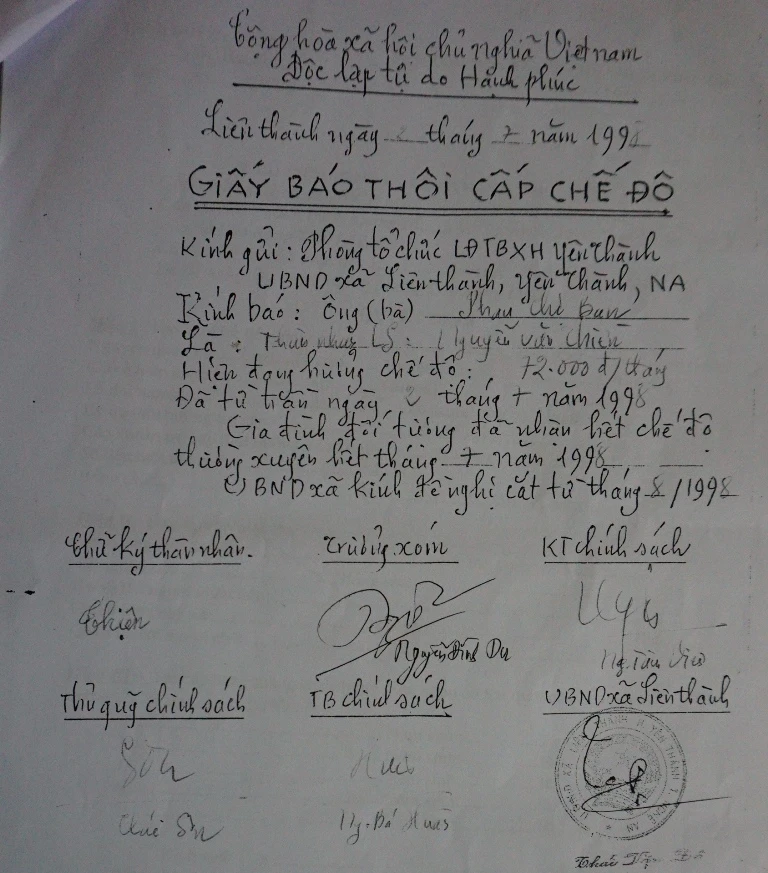 Cộng hòa xã hội chủ nghĩa Việt nam
Độc lập tự do Hạnh phúc
Liên thành ngày 2 tháng 7 năm 1998
GIẤY BÁO THÔI CẤP CHẾ ĐỘ
Kính gửi: Phòng tổ chức LĐTBXH Yên thành
UBND xã Liên thành, Yên thành, NA
Kính báo: Ông (bà) Phan thị
Là: Thân nhân LS: Nguyễn văn Chiến
Hiện đang hưởng chế độ: 72.000 đ/tháng
Đã từ trần ngày 2 tháng 7 năm 1998
Gia đình đối tượng đã nhận hết chế độ
thường xuyên hết tháng 7 năm 1998,
UBND xã kính đề nghị cắt từ tháng 8/1998
Chữ ký thân nhân.
Trưởng xóm
KT chính sách
Thiện
Nguyễn Đình Du
Ng.
Thủ quỹ chính sách
TB chính sách
UBND xã Liên thành
Sơn
Thái Sơn
Ng. Bá
Thái